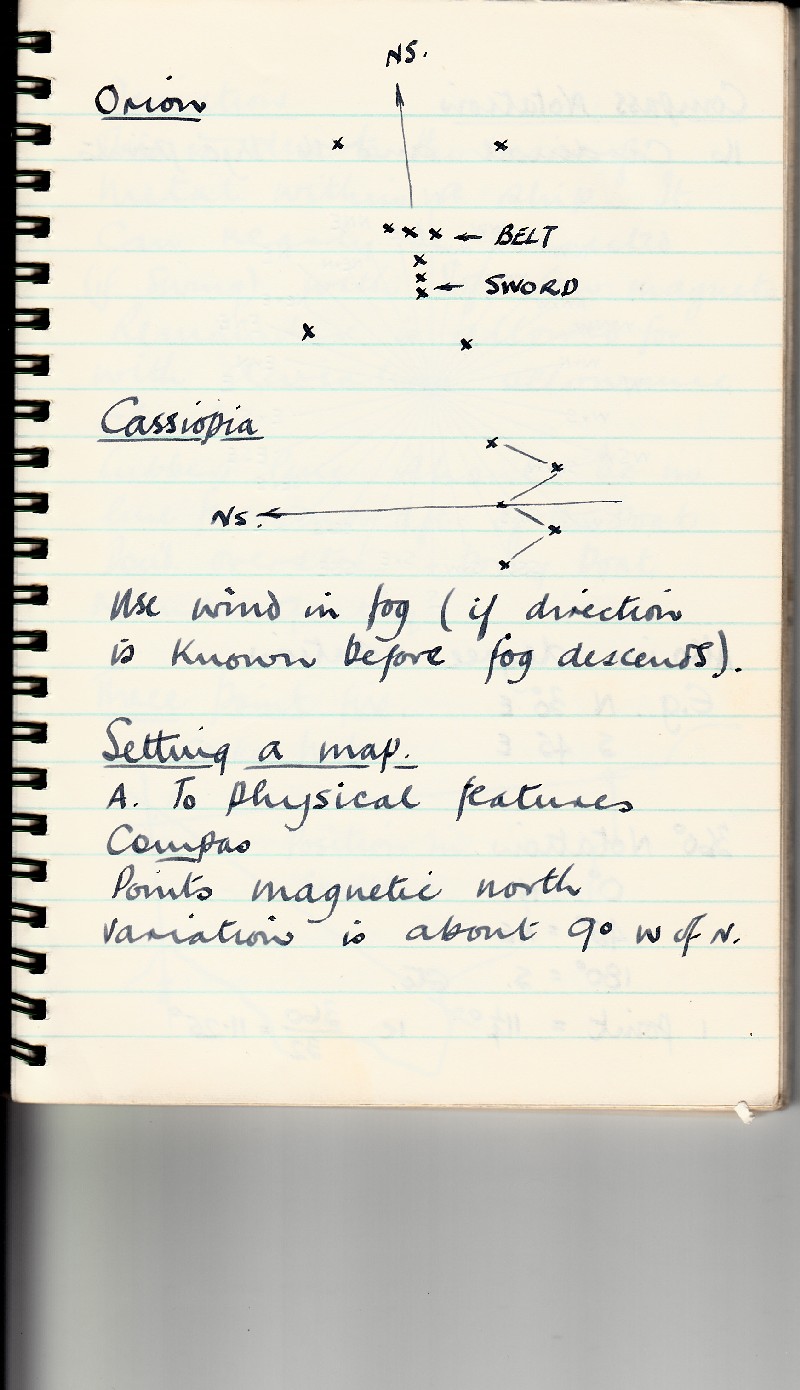 NS.
Orion
← BELT
← SWORD
Cassiopia
NS.
Use wind in fog (if direction
is known before fog descends).
Setting a map.
A. To physical features
Compas
Points magnetic north
variation is about 9° W of N.